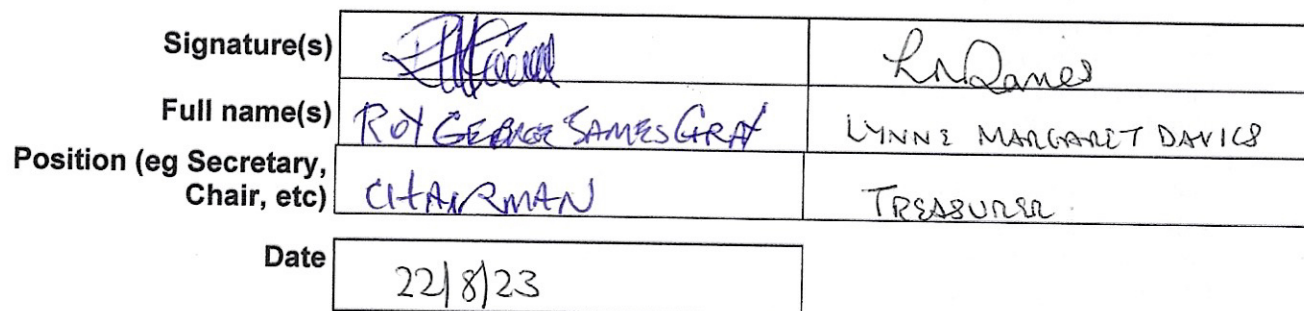 Signature(s)
Full name(s) ROY GEORGE JAMES GRAY LYNNE MARGARET DAVIES
Position (eg Secretary,
Chair, etc) CHAIRMAN TREASURER
Date 22/8/23